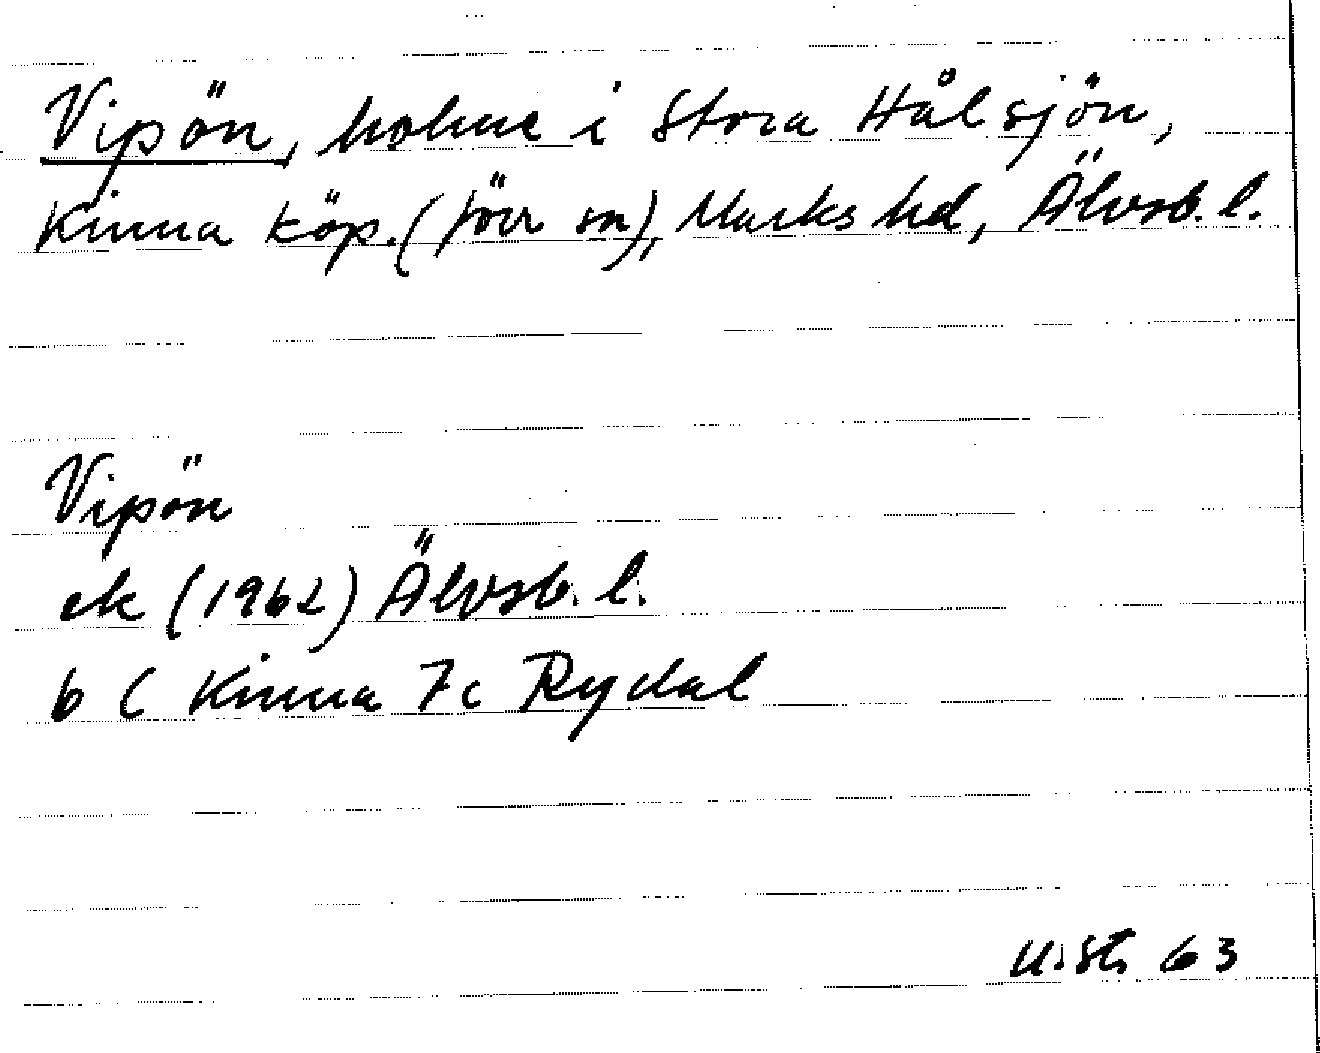 Vipön, holme i Stora Hålsjön,
Kinna köp. (förr sn), Marks hd, Älvsb. l.
Vipön
ek (1962) Älvsb. l.
6 C Kinna 7c Rydal
U. St. 63